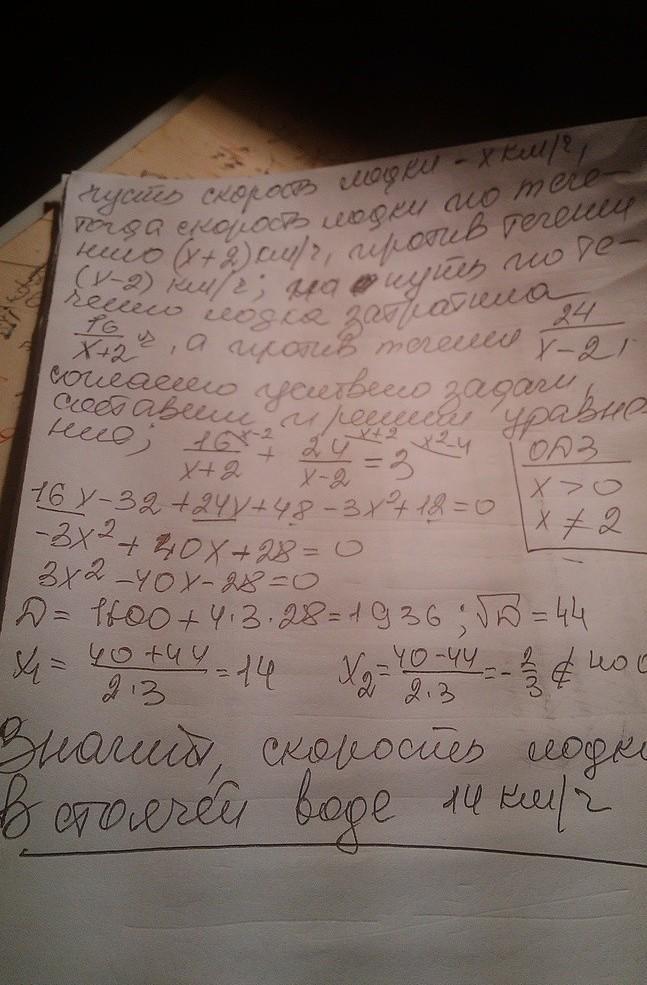 пусть скорость лодки - x км/ч,
тогда скорость лодки по тече-
нию (x+2) км/ч, против течения
(x-2) км/ч; на путь по те-
чению лодка затратила
16/(x+2) ч, а против течения 24/(x-2),
согласно условию задачи,
составим и решим уравне-
ние; 16/(x+2) x-2 + 24/(x-2) x+2 = 3 x²-4
ОДЗ
x > 0
x ≠ 2
16x-32+24x+48-3x²+12=0
-3x²+40x+28=0
3x²-40x-28=0
D= 1600+4·3·28=1936; √D=44
x₁= (40+44)/(2·3) =14 x₂= (40-44)/(2·3) =-2/3 ∉
Значит, скорость лодки
в стоячей воде 14 км/ч